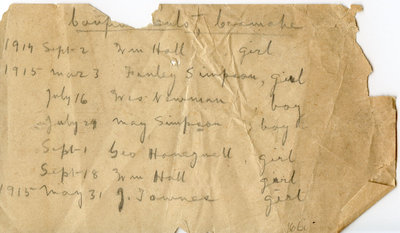 1914 Sept-2 Wm Hall girl
1915 Mar 3 Fanley Simpson, girl
July 16 Wes Newman, boy
July 29 May Simpson boy
Sept-1 Geo Honeywell, girl
Sept-18 Wm Hall girl
1915 May 31 J. Townes girl